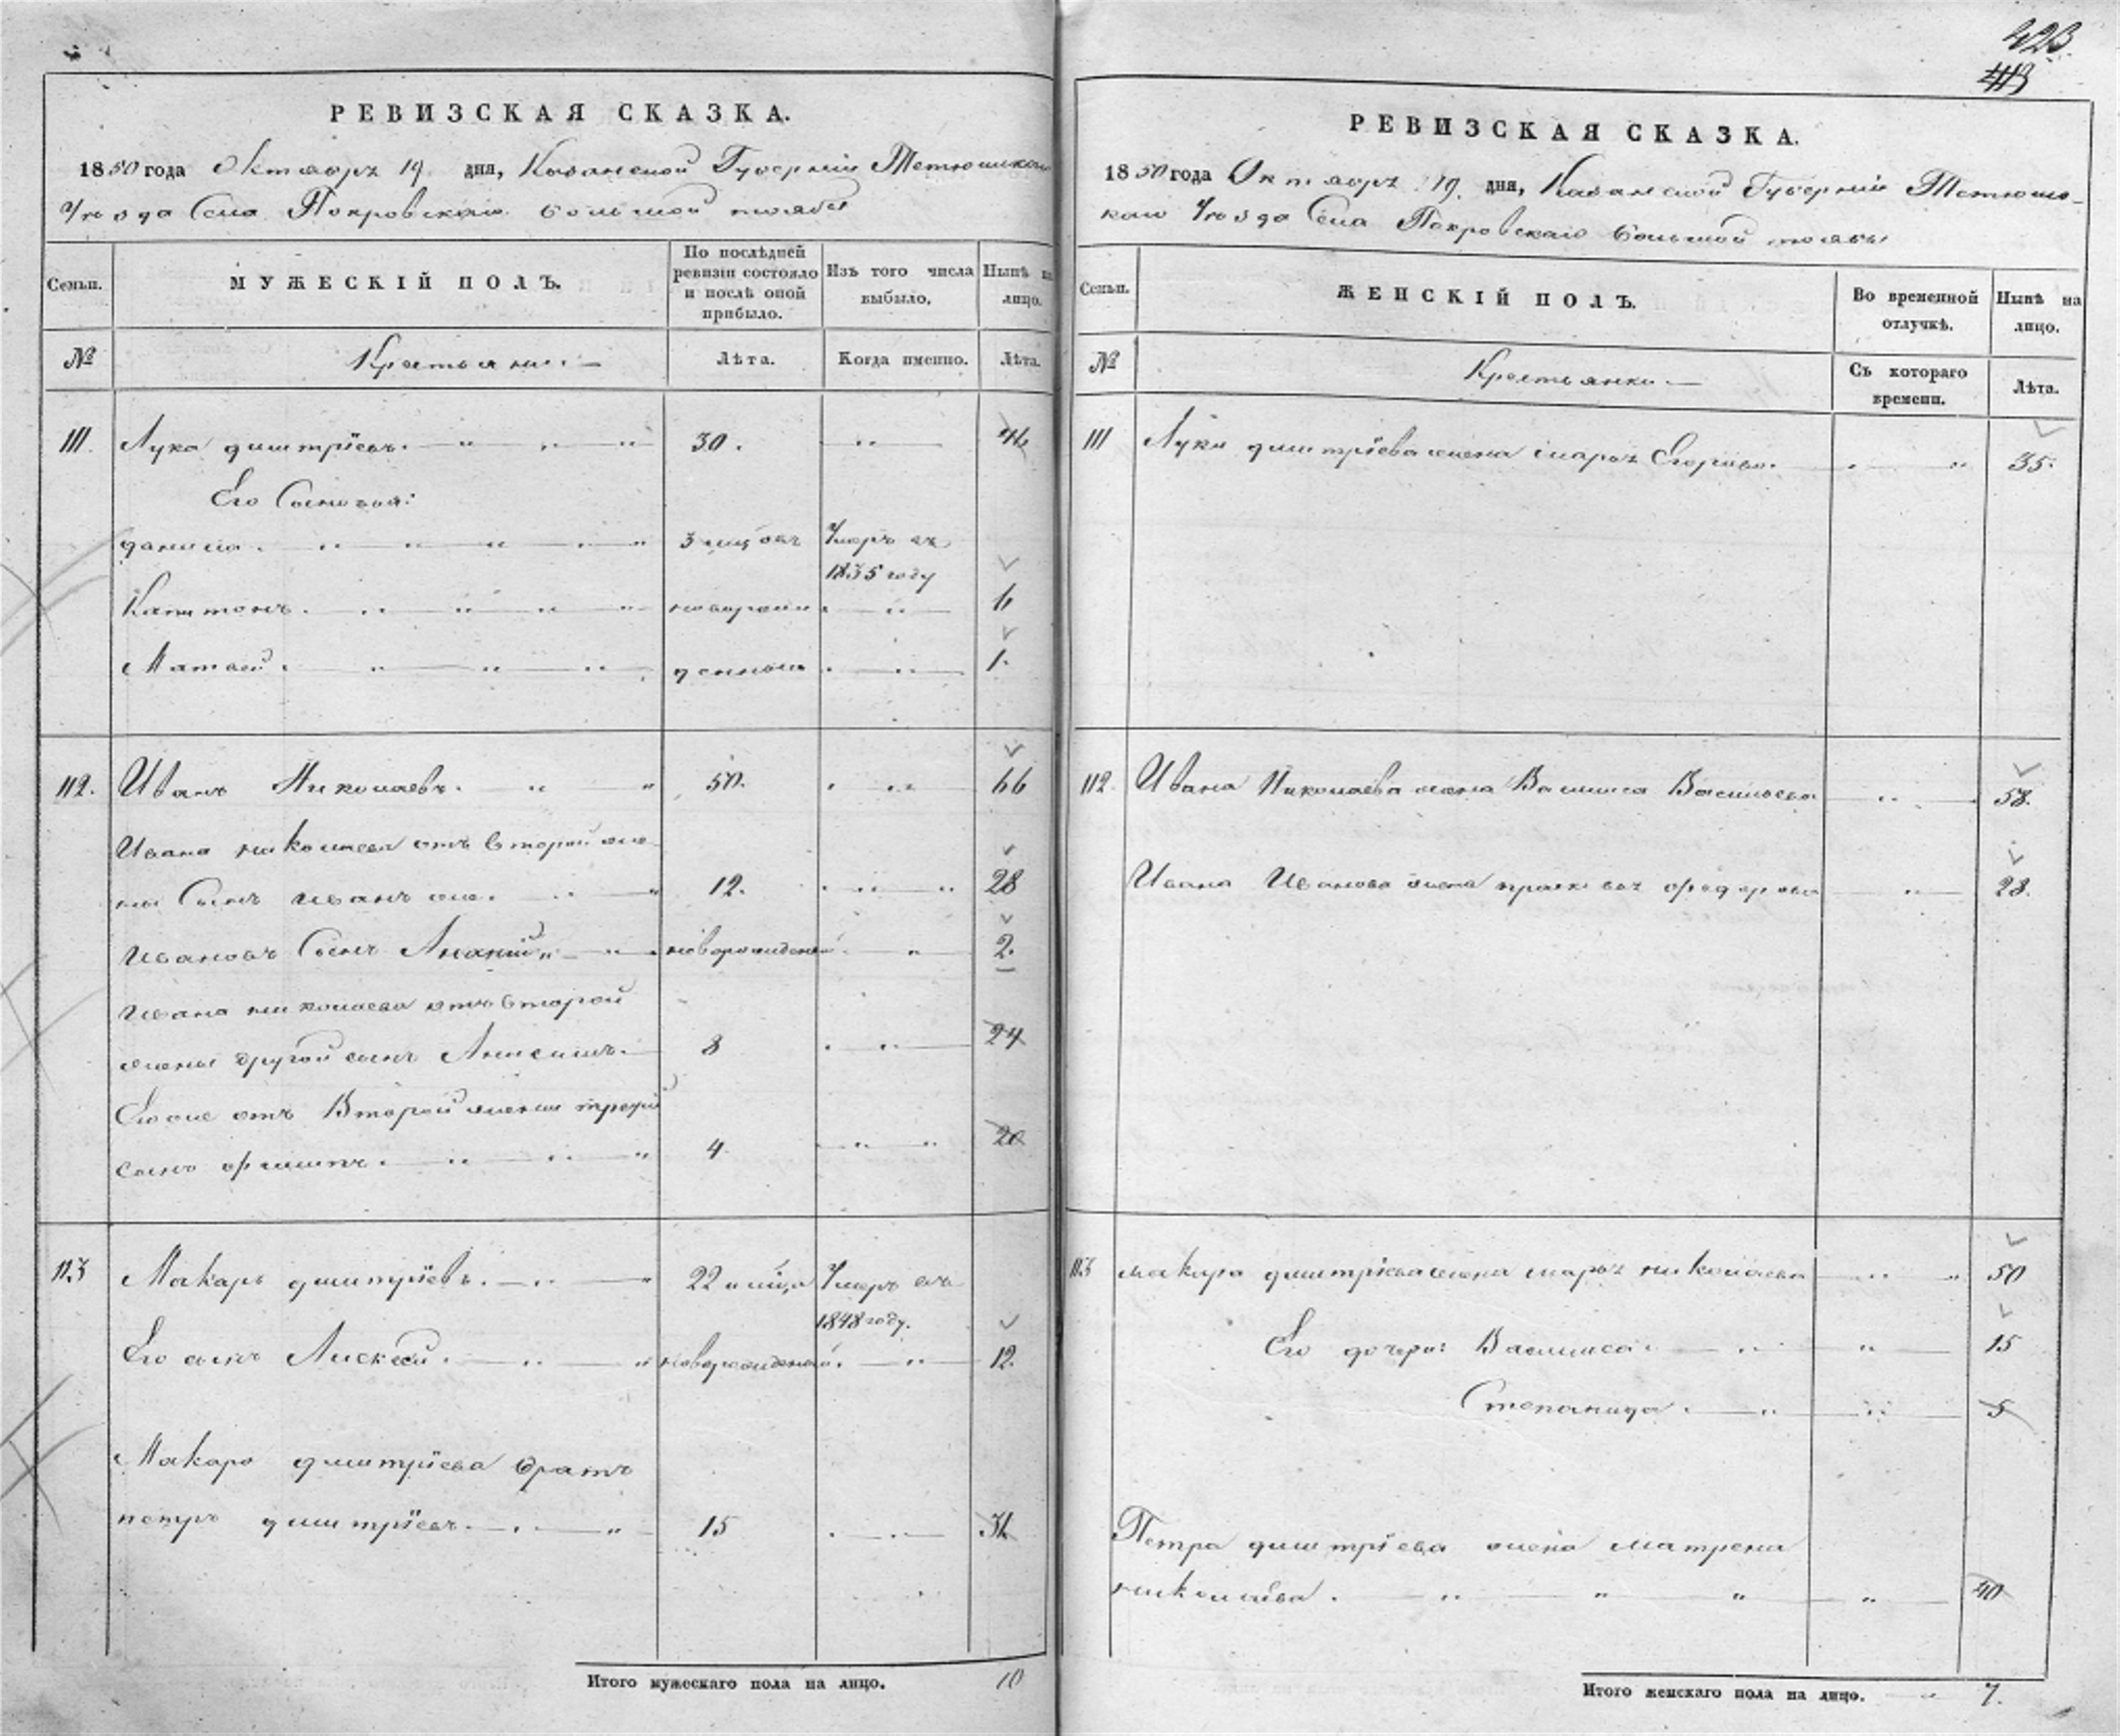 РЕВИЗСКАЯ СКАЗКА.
1850 года Октября 19 дня, Казанской Губерніи Тетюшскаго
Уѣзда Села Покровскаго Большой тоябы
Семьи. МУЖЕСКІЙ ПОЛЪ. По послѣдней ревизіи состояло и послѣ оной прибыло. Изъ того числа выбыло. Нынѣ на лицо.
№ Крестьяне. Лѣта. Когда именно. Лѣта.
111. Лука дмитріевъ. 30. 46
Его Сыновья:
данила. 3 мцовъ Умеръ въ
1835 году
Капитонъ. новорожден. 6
Матвей. 1.
112. Иванъ Николаевъ. 50. 66
Ивана николаева отъ второй же
ны Сынъ иванъ же. 12. 28
Ивановъ Сынъ Ананій новорожденный 2.
Ивана николаева отъ второй
жены другой сынъ Анисимъ. 8 24
Егоже отъ Второй жены третій
сынъ филипъ. 4 20
113 Макаръ дмитріевъ. 22 Умеръ въ
1848 году.
Его сынъ Алексей. новорожденный. 12.
Макара дмитріева братъ
петръ дмитріевъ. 15 31
Итого мужескаго пола на лицо. 10
423
413
РЕВИЗСКАЯ СКАЗКА.
1850 года Октября 19 дня, Казанской Губерніи Тетюшс-
каго Уѣзда Села Покровскаго Большой тоябы
Семьи. ЖЕНСКІЙ ПОЛЪ. Во временной отлучкѣ. Нынѣ на лицо.
№ Крестьянки Съ котораго времени. Лѣта.
111 Луки дмитріева жена марья Егорова. 35.
112. Ивана Николаева жена Васлиса Васильева 58.
Ивана Иванова жена прасковья федорова 28.
113 макара дмитріева жена марья николаева 50
Его дочери: Васлиса 15
Степанида. 5
Петра дмитріева жена матрена
николаева. 40
Итого женскаго пола на лицо. 7.